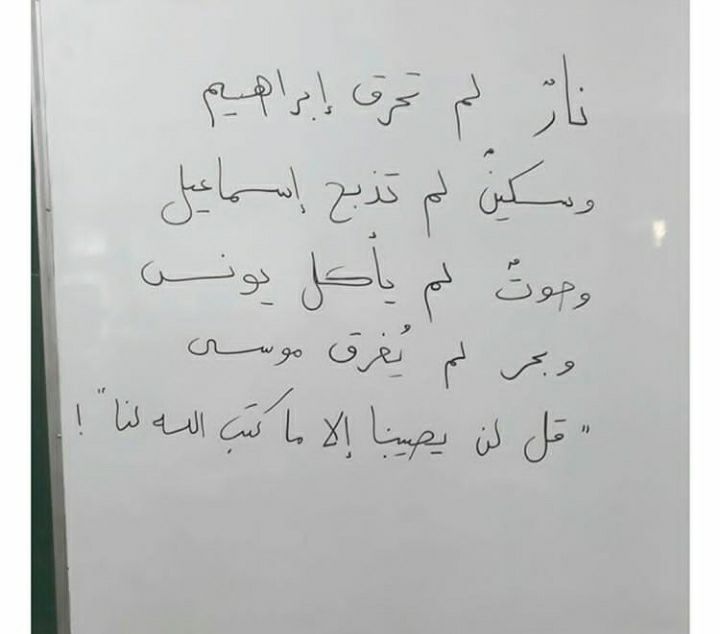 نارٌ لم تحرق إبراهيم
وسكينٌ لم تذبح إسماعيل
وحوتٌ لم يأكل يونس
وبحر لم يُغرق موسى
"قل لن يصيبنا إلا ما كتَب الله لنا"!